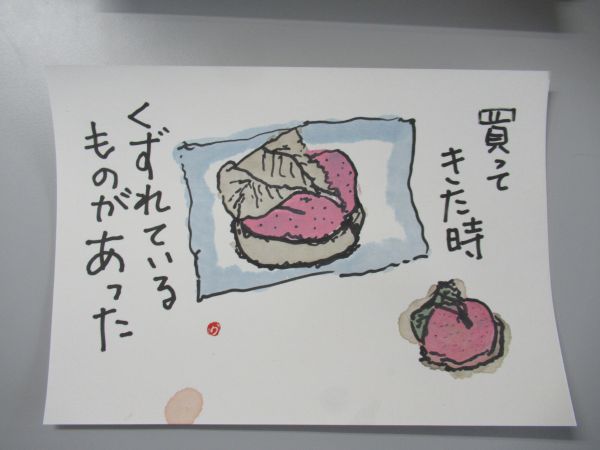 買って
きた時
くずれている
ものがあった